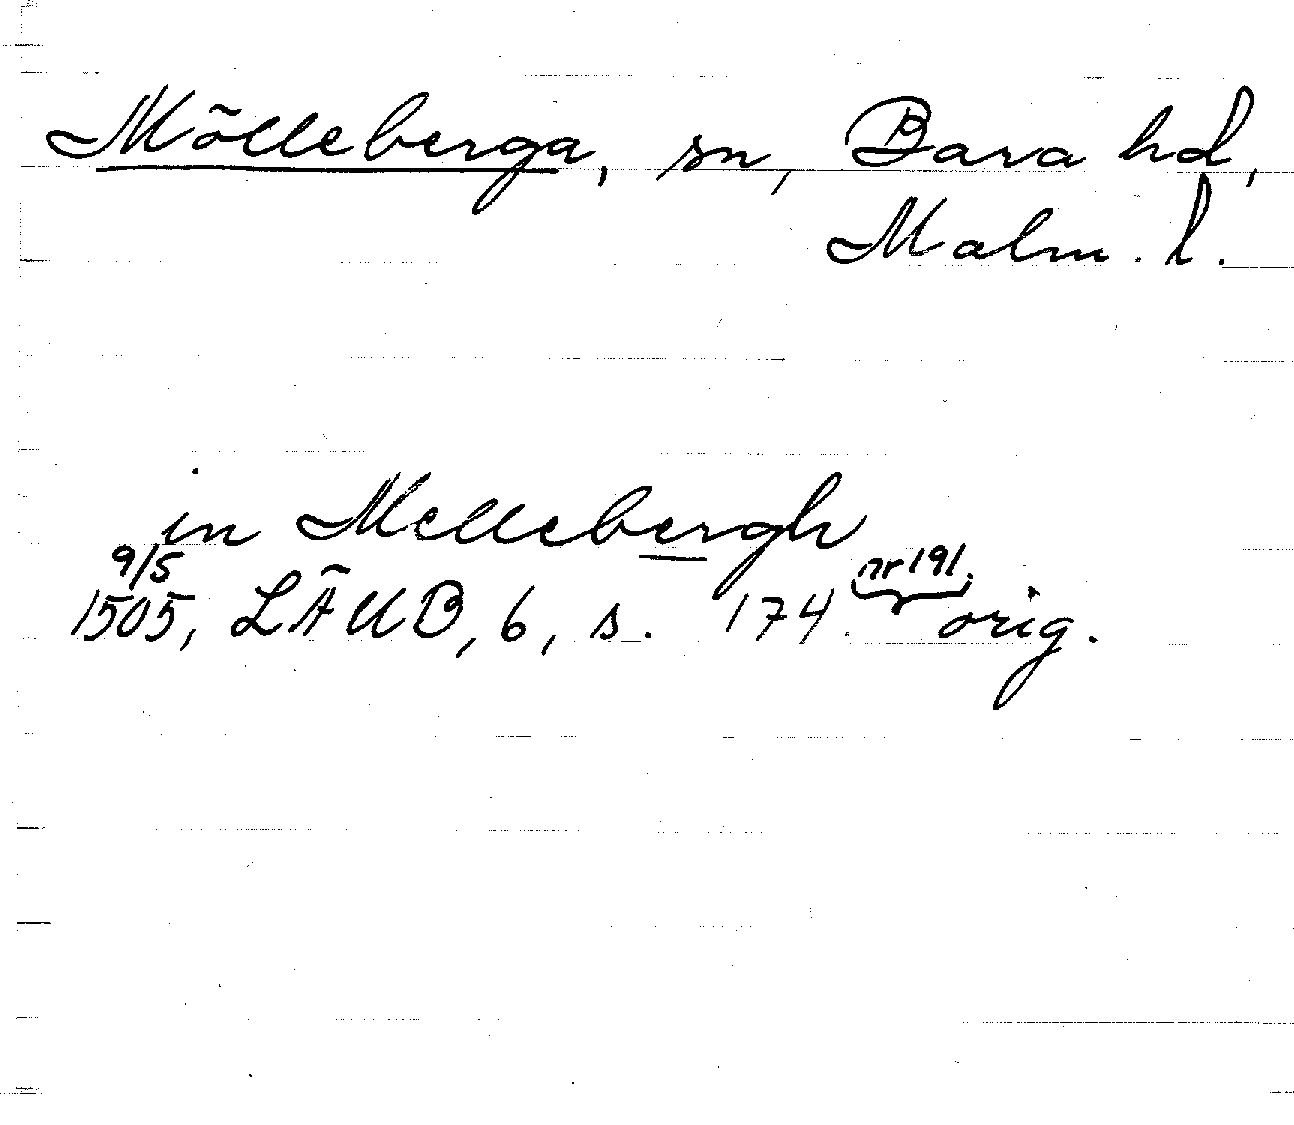 Mölleberga, sn, Bara hd,
Malm. l.
in Mellebergh
9/5
1505, LÄUB, 6, s. 174. nr 191. orig.